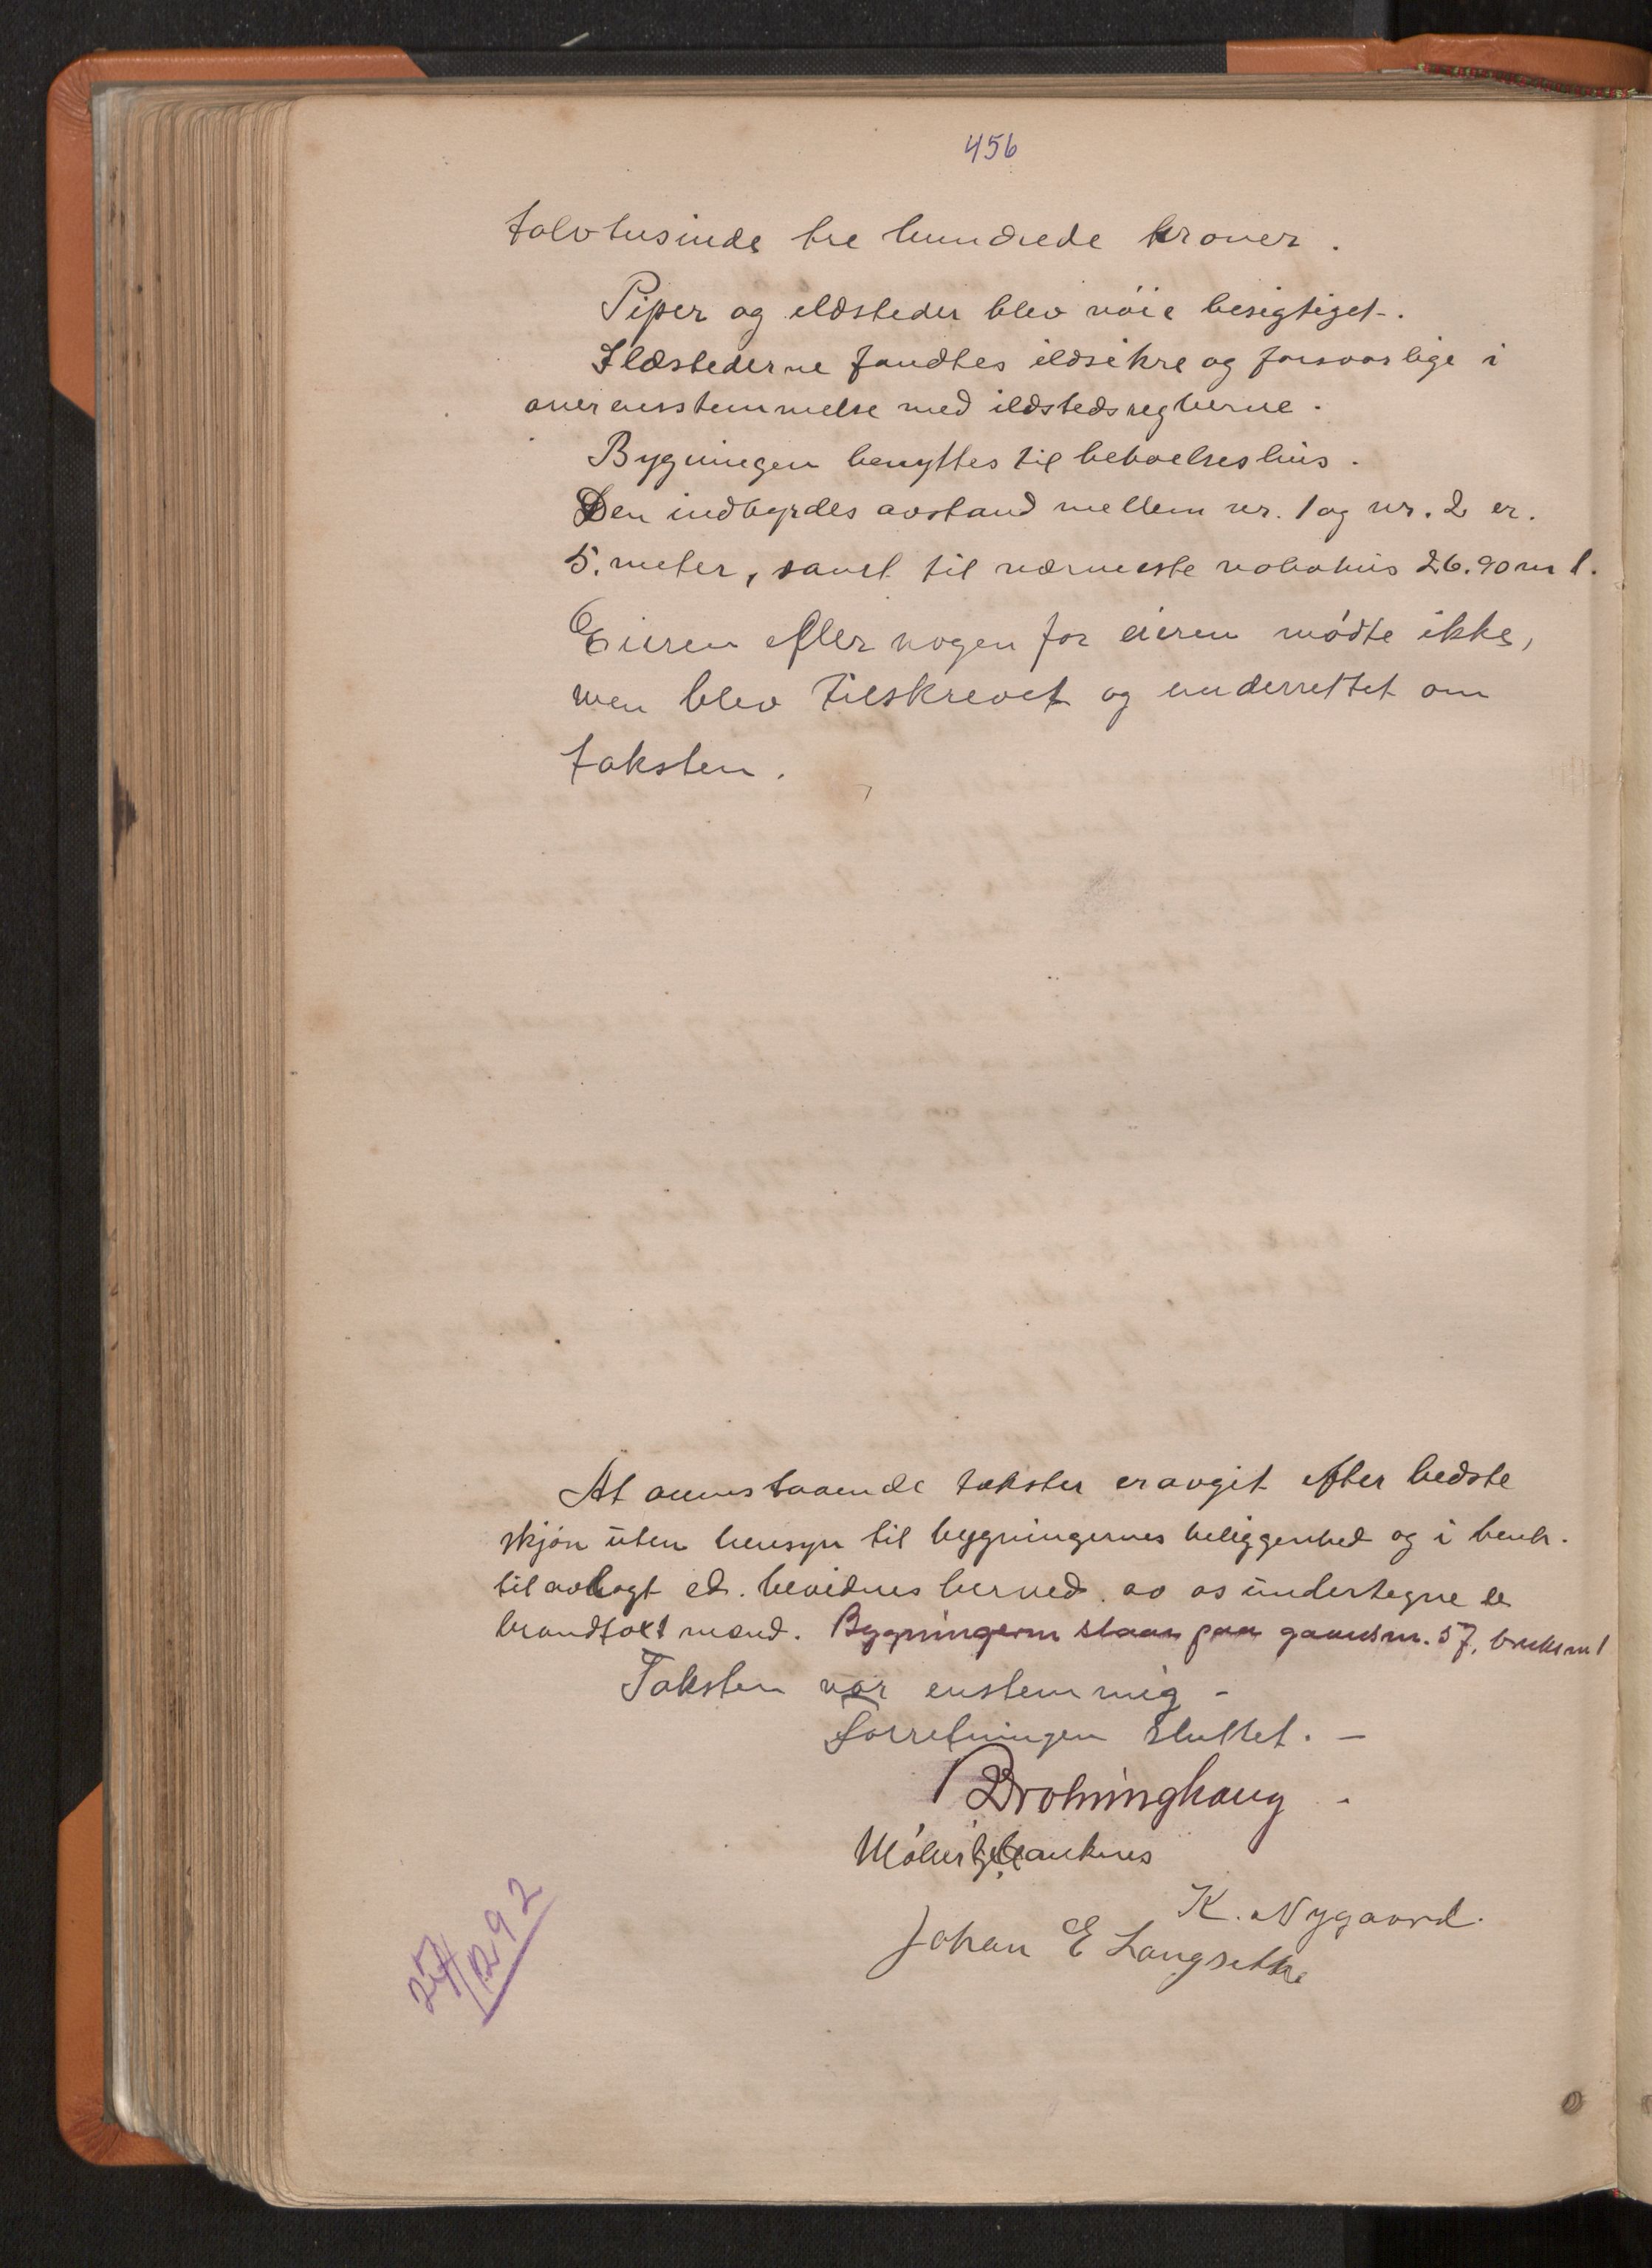 456
tolvtusinde tre hundrede kroner.
Piper og ildsteder blev nöie besigtiget.
Ildstederne fandtes ildsikre og forsvarlige i
overensstemmelse med ildstedsreglerne.
Bygningen benyttes til beboelseshus.
Den indbyrdes avstand mellem nr. 1 og nr. 2 er.
5. meter, samt til nærmeste nabohus 26.90 m t.
Eieren eller nogen for eieren mödte ikke,
men blev tilskrevet og underrettet om
taksten.
At ovenstaaende takster er avgit efter bedste
skjön uten hensyn til bygningernes beliggenhed og i henh.
til avlagt ed. bevidnes herved. av os undertegnede
brandtakstmænd. Bygningerne staar paa gaardsnr. 57, bruksnr 1
Taksten var enstemmig -
Forretningen sluttet. -
K. Nygaard.
Johan E Langsethe